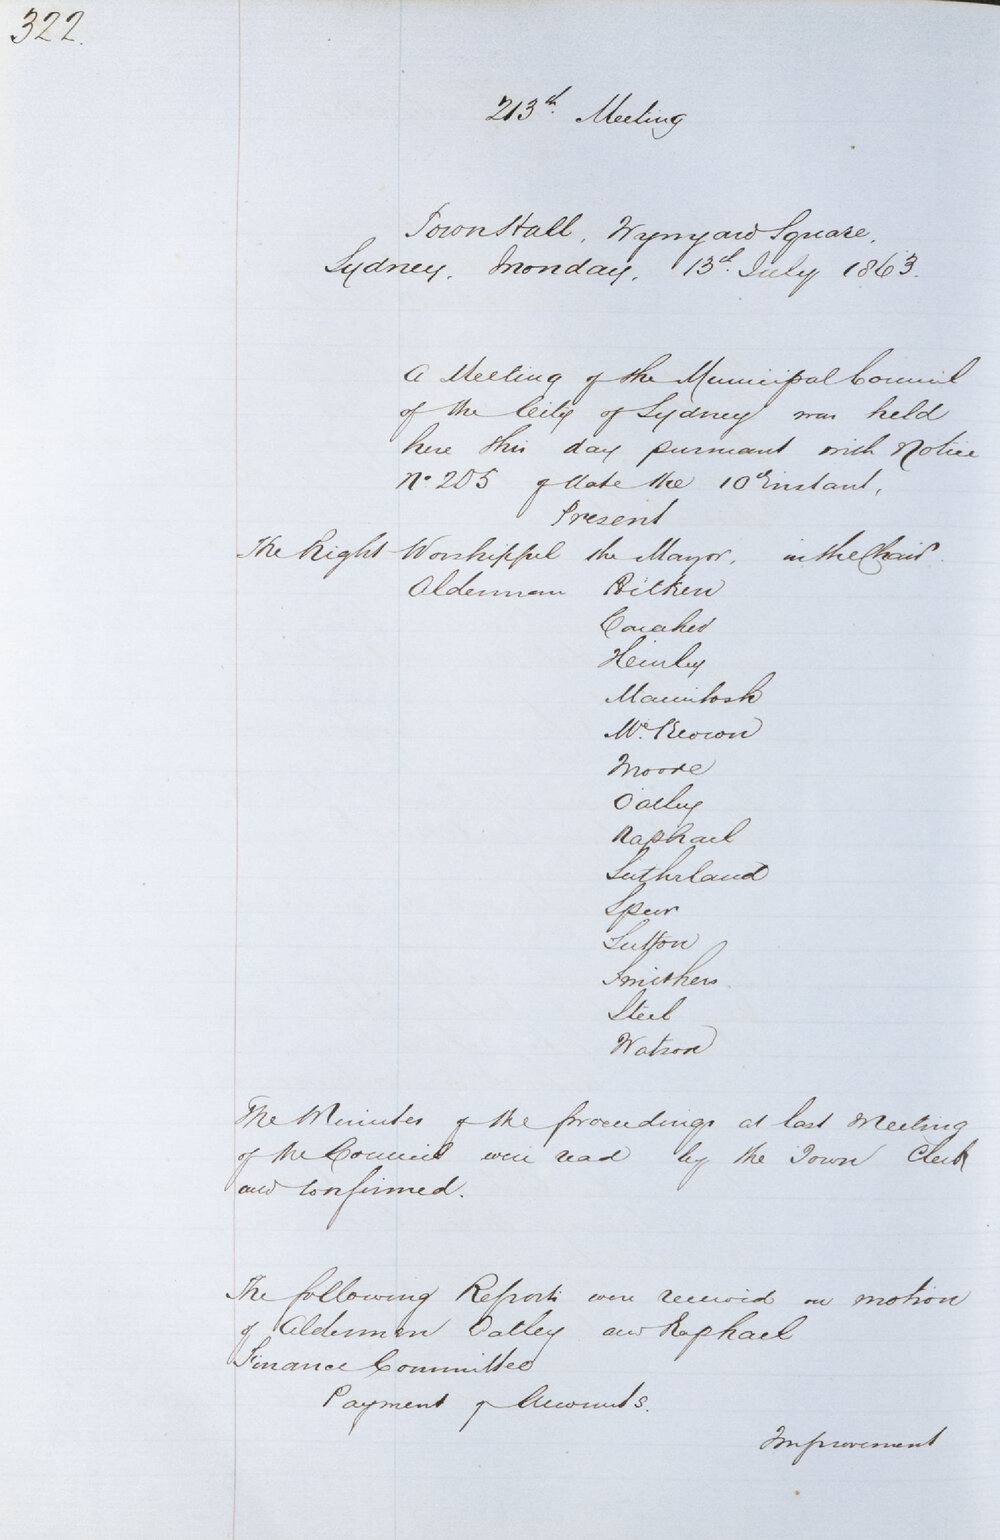 322.
213th. Meeting
Town Hall, Wynyard Square,
Sydney, Monday, 13th. July 1863.
A Meeting of the Municipal Council
of the City of Sydney was held
here this day pursuant with Notice
No. 205 of date the 10th Instant,
Present
The Right Worshippful the Mayor, in the Chair.
Alderman Aitken
Caraher
Henley
Macintosh
Mc. Keown
Moore
Oatley
Raphael
Sutherland
Speer
Sutton
Smithers
Steel
Watson
The Minutes of the proceedings at last Meeting
of the Council were read by the Town Clerk
and confirmed.
The following Reports were received on motion
of Aldermen Oatley and Raphael
Finance Committee
Payment of Accounts.
Improvement